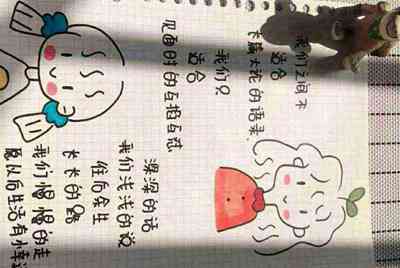 我们之间不
适合
长篇大论的语录.
我们只
适合
见面时的互掐互怼
深深的话
我们浅浅的说
往后余生
长长的路
我们慢慢的走
愿以后生活有小幸